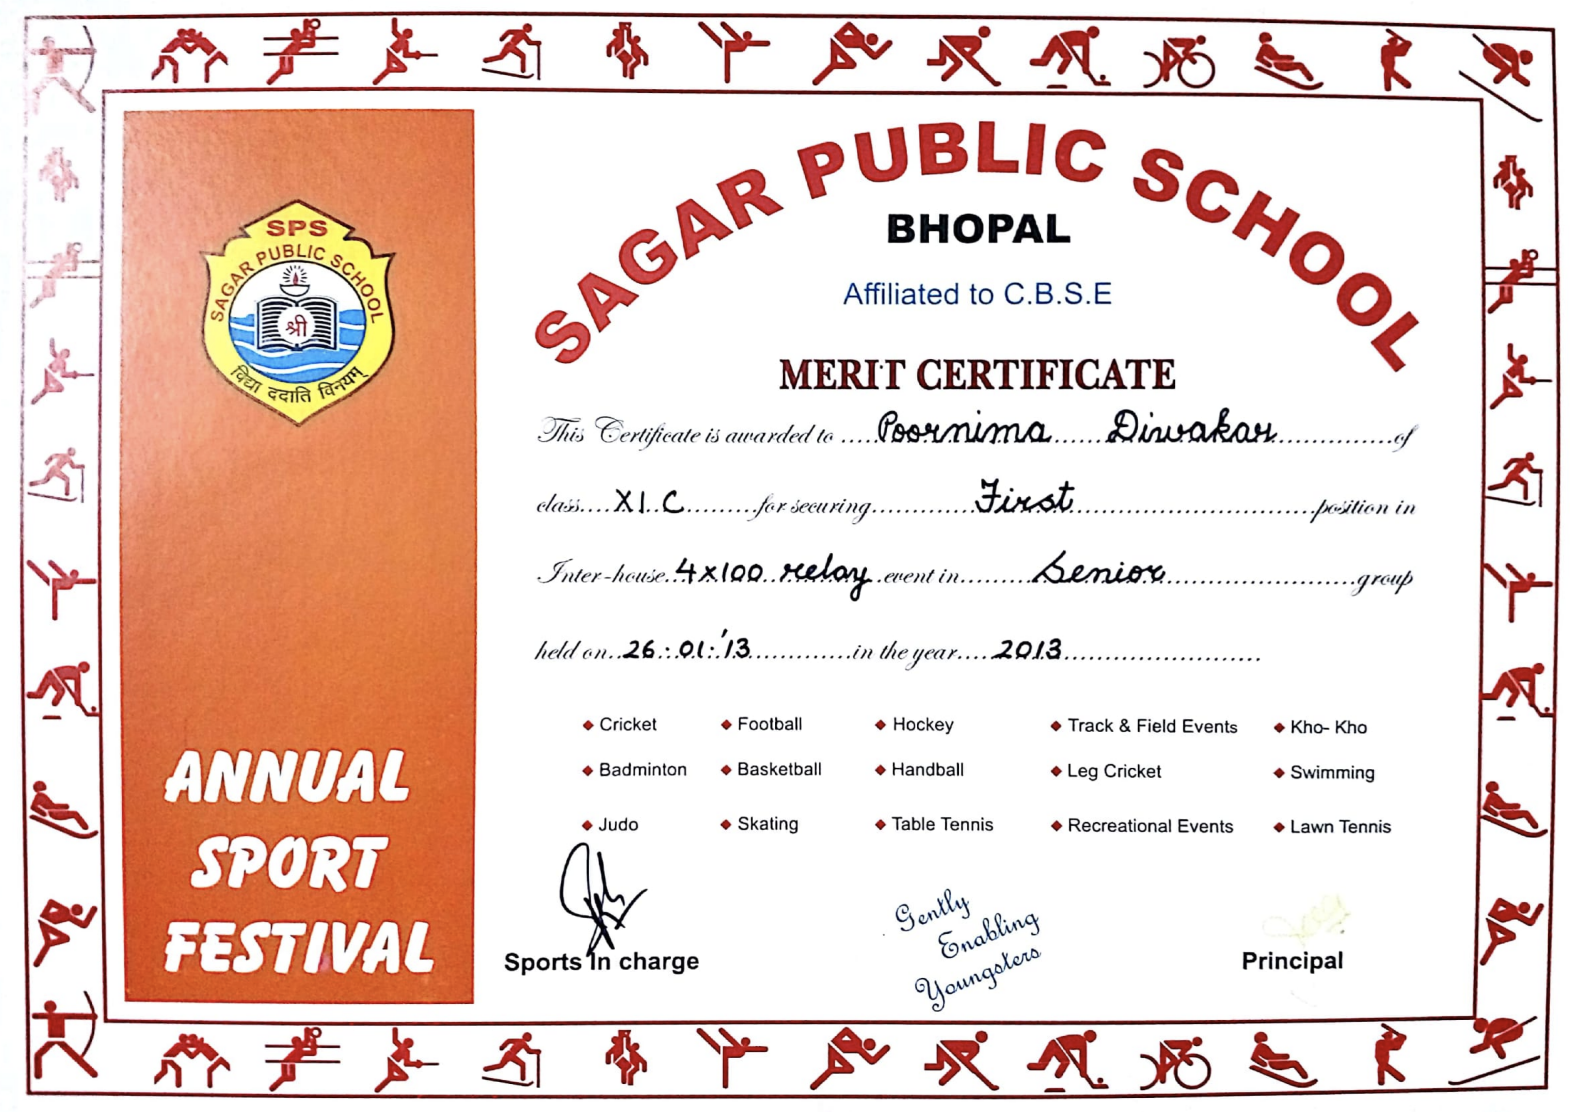 SPS
SAGAR PUBLIC SCHOOL
श्री
विद्या ददाति विनयम्
ANNUAL
SPORT
FESTIVAL
SAGAR PUBLIC SCHOOL
BHOPAL
Affiliated to C.B.S.E
MERIT CERTIFICATE
This Certificate is awarded to ..... Poornima ...... Diwakar ................ of
class.... XI..C ......... for securing ............. First .................................. position in
Inter-house.. 4x100.. relay .event in ......... Senior .......................... group
held on.. 26.:.01.:.'13 ............. in the year .... 2013 ..........................
◆ Cricket ◆ Football ◆ Hockey ◆ Track & Field Events ◆ Kho- Kho
◆ Badminton ◆ Basketball ◆ Handball ◆ Leg Cricket ◆ Swimming
◆ Judo ◆ Skating ◆ Table Tennis ◆ Recreational Events ◆ Lawn Tennis
Gently
Enabling
Youngsters
Sports In charge
Principal